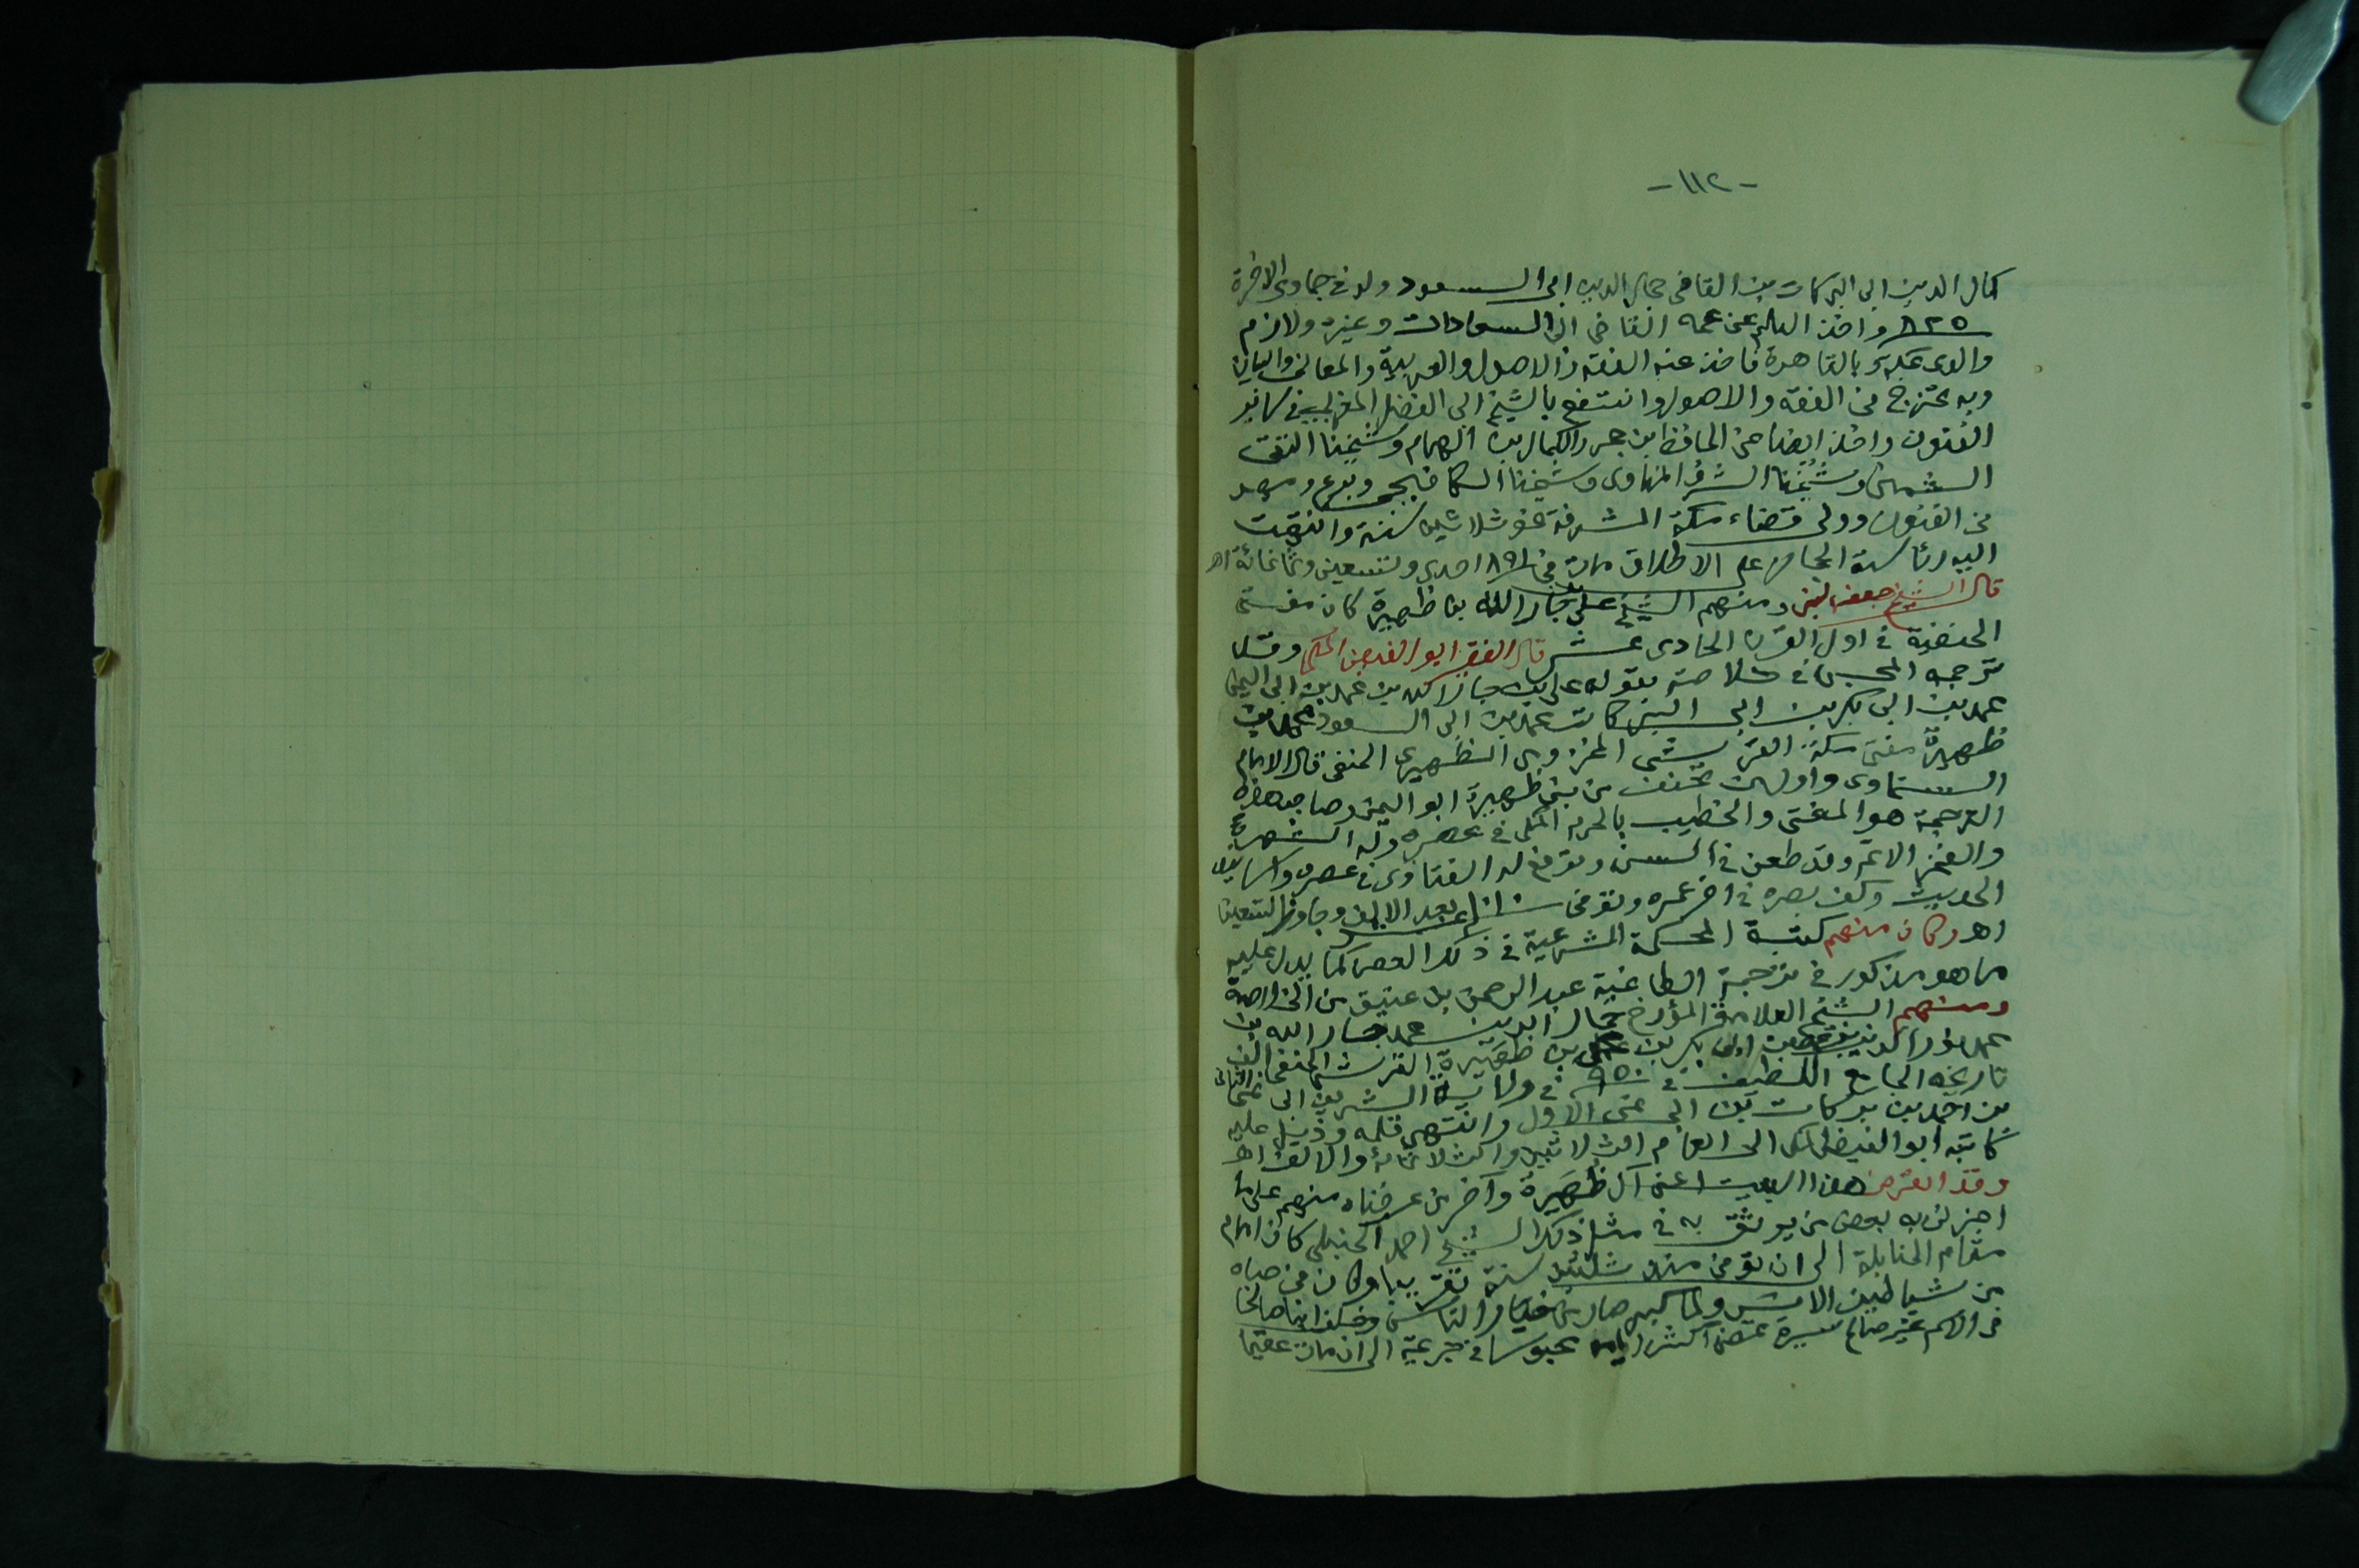 - ١١٢ -
كمال الدين ابى البركات بن القاضى جمال الدين ابى السعود ولد فى جمادى الاخرة
٨٢٥ واخذ العلم عن عمه القاضى ابى السعادات وغيره ولازم
والدى بمكة وبالقاهرة فاخذ عنه الفقه والاصول والعربية والمعانى والبيان
وبه تخرج فى الفقه والاصول وانتفع بالشيخ ابى الفضل المغربى فى سائر
الفنون واخذ ايضا عن الحافظ بن حجر والكمال بن الهمام وشيخنا التقى
الشمنى وشيخنا الشرف المناوى وشيخنا الكافيجى وبرع ومهر
فى الفنون وولى قضاء مكة المشرفة نحو ثلاثين سنة وانتهت
اليه رئاسة الحجاز على الاطلاق مات فى ٨٩١ احدى وتسعين وثمانمائة اهـ
قال الشيخ جعفر لبنى ومنهم الشيخ على بن جار الله بن ظهيرة كان مفتى
الحنفية فى اول القرن الحادى عشر قال الفقير ابو الفيض المكى وقد
ترجمه المحبى فى خلاصته بقوله على بن جار الله بن محمد بن ابى اليمن
محمد بن ابى بكر بن ابى البركات محمد بن ابى السعود محمد بن
ظهيرة مفتى مكة القرشى المخزومى الظهيرى الحنفى قال الامام
السخاوى واول من تحنف من بنى ظهيرة ابو اليمن وصاحب هذه
الترجمة هو المفتى والخطيب بالحرم المكى فى عصره وله الشهرة
والفخر الاتم وقد طعن فى السن وترفع له الفتاوى فى عصره
الحديث وكف بصره فى اخر عمره وتوفى بعد الالف وجاوز التسعين
اهـ وكان منهم كتبة المحكمة الشرعية فى ذلك العصر كما يدل عليه
ما هو مذكور فى ترجمة الطاغية عبد الرحمن بن عتيق من الخلاصة
ومنهم الشيخ العلامة المؤرخ جمال الدين محمد جار الله بن
محمد نور الدين بن ابى بكر بن على بن ظهيرة القرشى الحنفى الف
تاريخه الجامع اللطيف فى ٩٥٠ فى ولاية الشريف ابى نمى الثانى
بن احمد بن بركات بن ابى نمى الاول وانتهى قلمه وذيل عليه
كاتبه ابو الفيض المكى الى العام الثلاثين والثلاثمائة والالف اهـ
وقد انقرض هذا البيت اعنى آل ظهيرة وآخر من عرفناه منهم على ما
اخبرنى به بعض من يوثق به فى مثل ذلك الشيخ احمد الحنبلى كان امام
مقام الحنابلة الى ان توفى منذ ثلاثين سنة تقريبا وكان فى صباه
من شياطين الانس ولما كبر صار من خيار الناس وخلف ابنا صالحا
فى الاسم غير صالح سيرة تقضى اكثر ايامه محبوسا فى جرعية الى ان مات عقيما